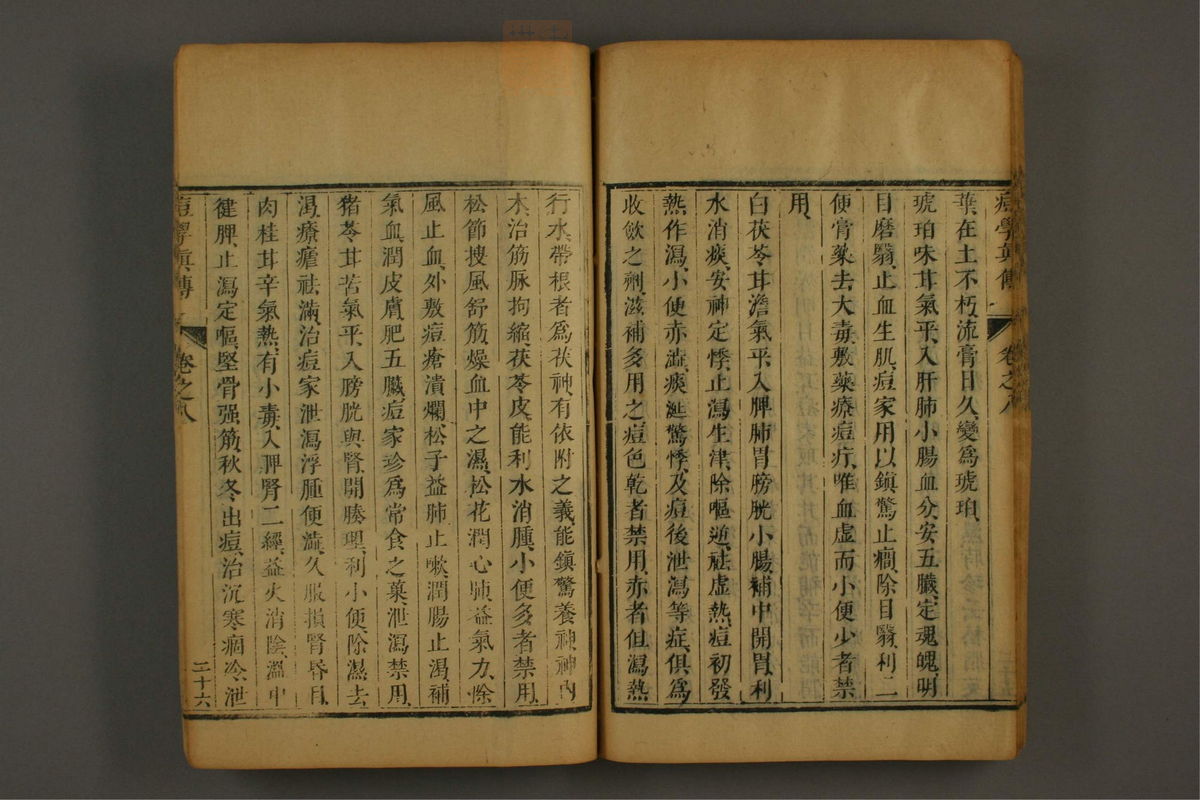 痘學真傳 卷之八
葉在土不朽流膏日久變爲琥珀
琥珀味甘氣平入肝肺小腸血分安五臟定魂魄明
目磨翳止血生肌痘家用以鎮驚止癎除目翳利二
便膏藥去大毒敷藥療痘疔唯血虛而小便少者禁
用
白茯苓甘澹氣平入脾肺胃膀胱小腸補中開胃利
水消痰安神定悸止瀉生津除嘔逆祛虛熱痘初發
熱作瀉小便赤澁痰涎驚悸及痘後泄瀉等症俱爲
收歛之劑滋補多用之痘色乾者禁用赤者但瀉熱
行水帶根者爲茯神有依附之義能鎮驚養神神內
木治筋脉拘縮茯苓皮能利水消腫小便多者禁用
松節搜風舒筋燥血中之濕松花潤心肺益氣力除
風止血外敷痘瘡潰爛松子益肺止嗽潤腸止渴補
氣血潤皮膚肥五臟痘家珍爲常食之菓泄瀉禁用
猪苓甘苦氣平入膀胱與腎開腠理利小便除濕去
渴療瘧祛滿治痘家泄瀉浮腫便澁久服損腎昏目
肉桂甘辛氣熱有小毒入脾腎二經益火消陰溫中
健脾止瀉定嘔堅骨强筋秋冬出痘治沉寒痼冷泄
痘學真傳 卷之八 二十六